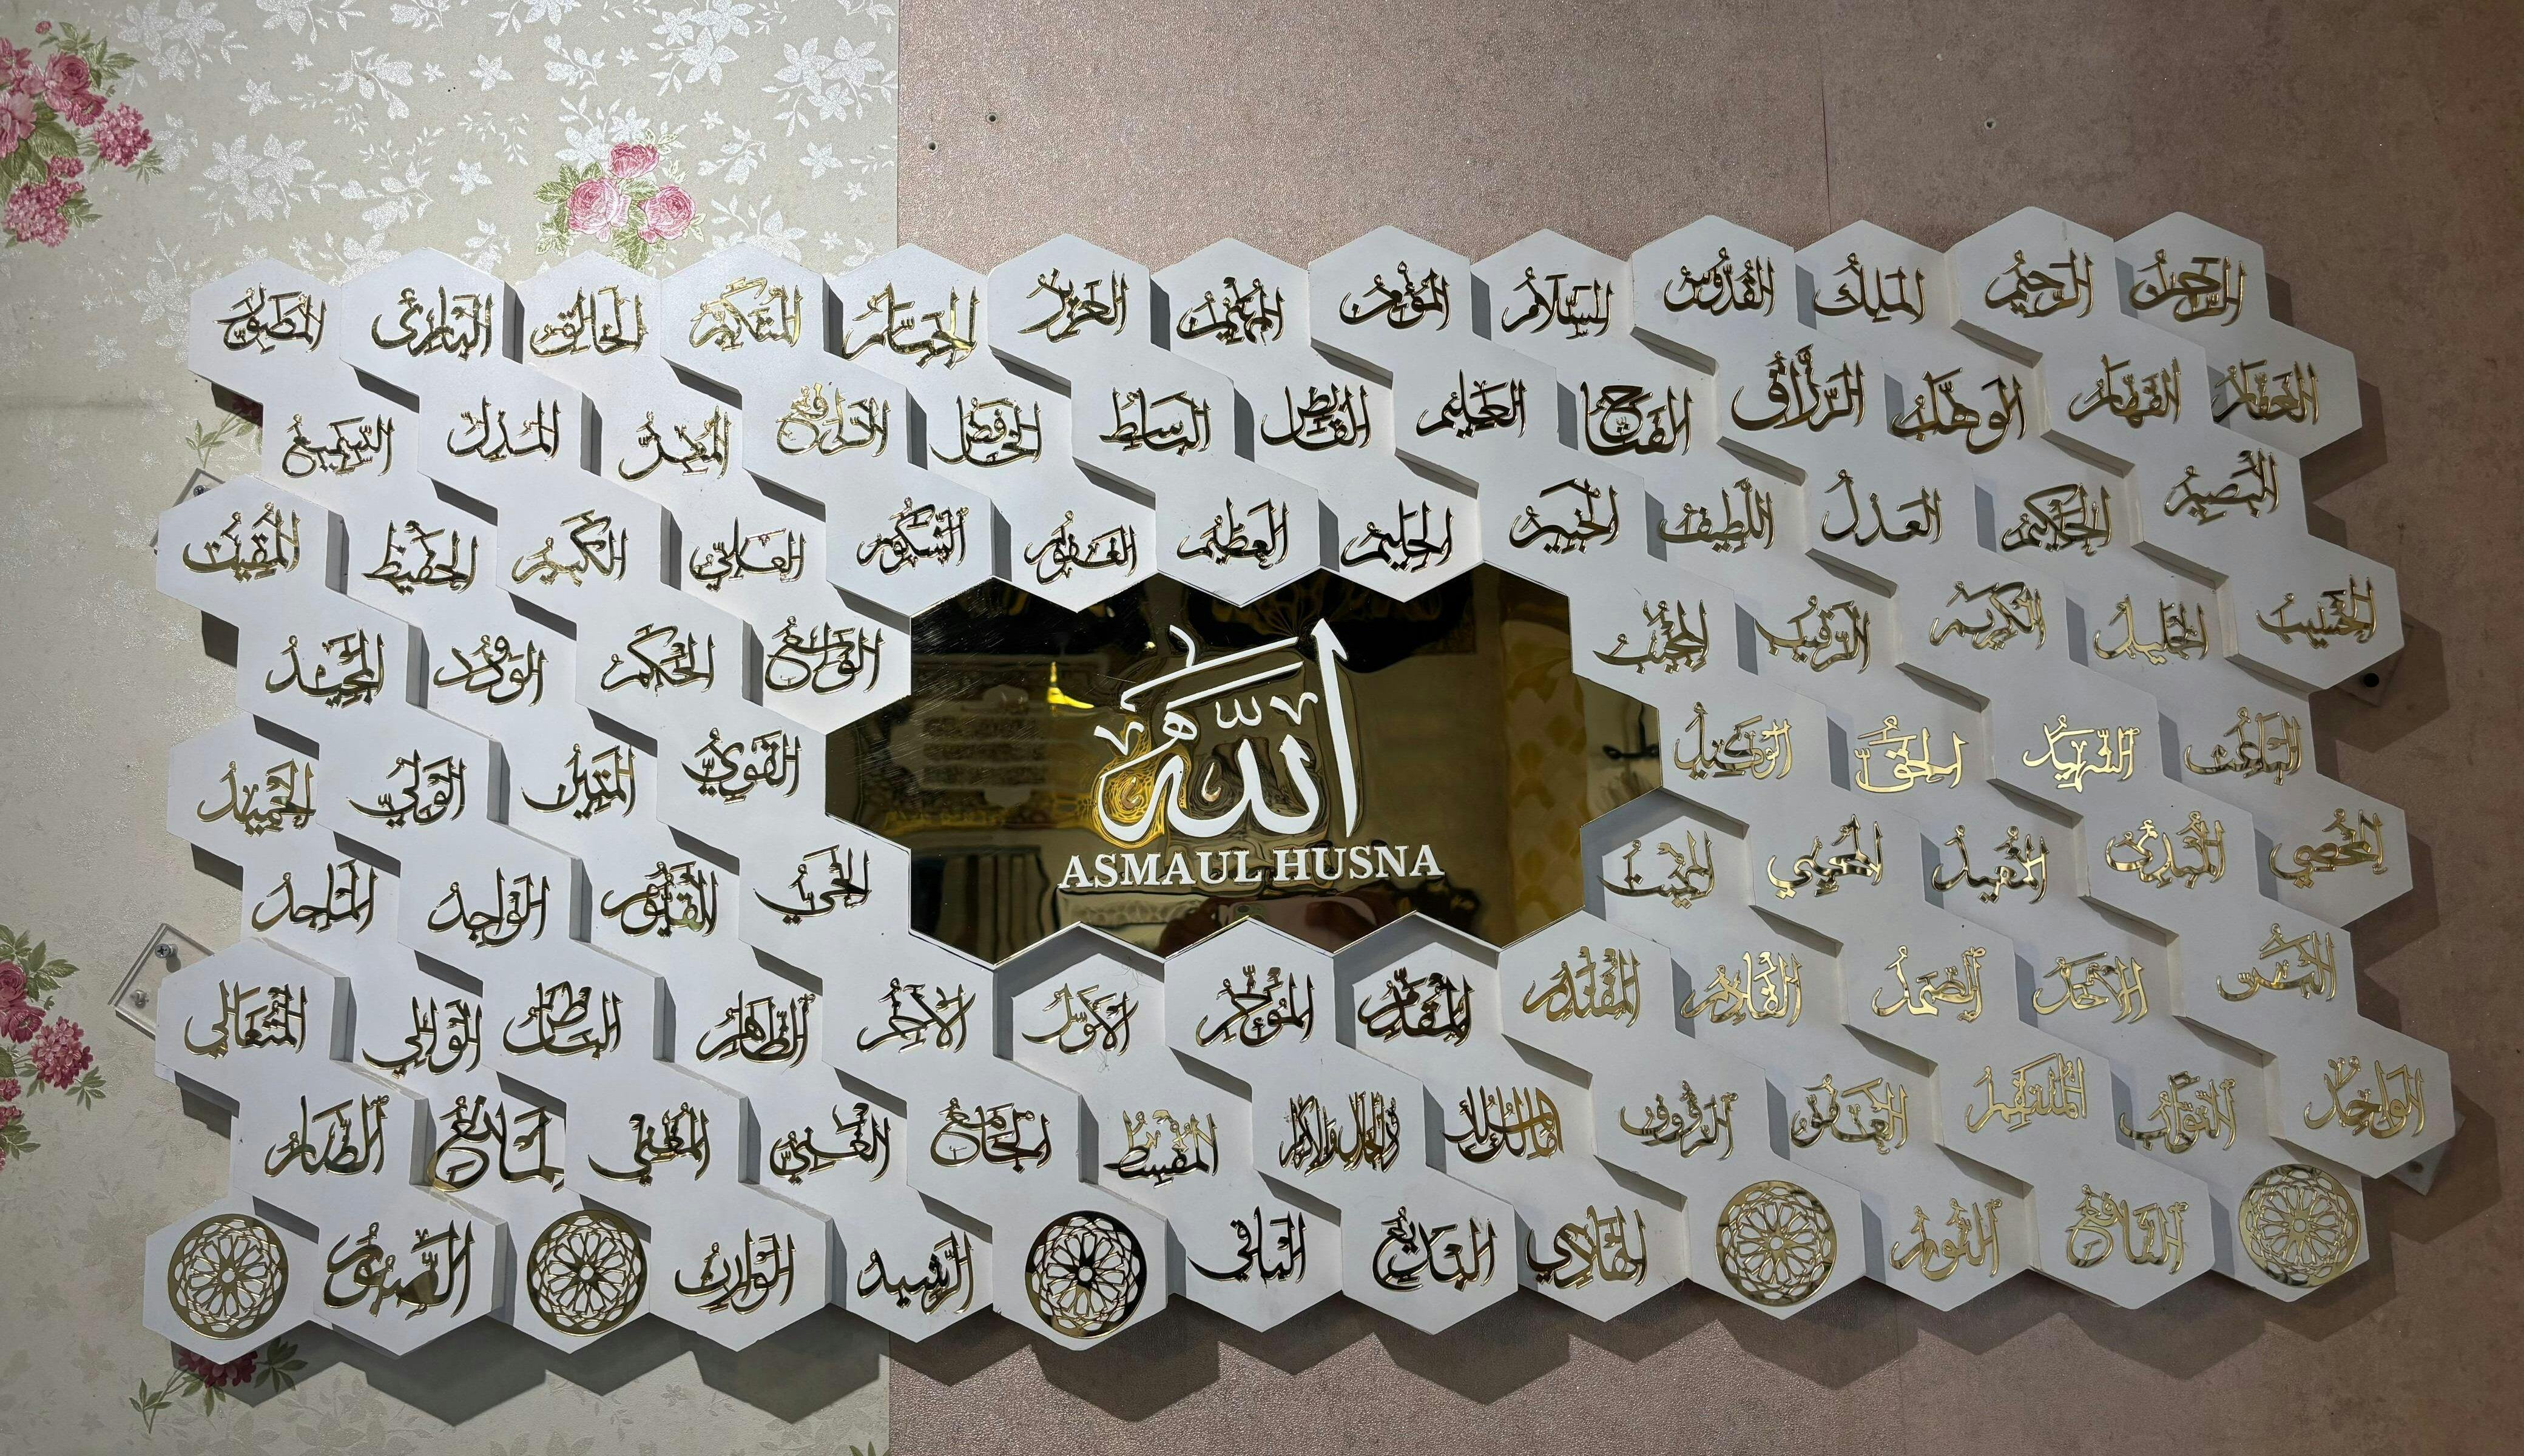 الرحمن الرحيم الملك القدوس السلام المؤمن المهيمن العزيز الجبار المتكبر الخالق البارئ المصور
الغفار القهار الوهاب الرزاق الفتاح العليم القابض الباسط الخافض الرافع المعز المذل السميع
البصير الحكيم العدل اللطيف الخبير الحليم العظيم الغفور الشكور العلي الكبير الحفيظ المقيت
الحسيب الجليل الكريم الرقيب المجيب الواسع الحكم الودود المجيد
الباعث الشهيد الحق الوكيل
الله
ASMAUL HUSNA
القوي المتين الولي الحميد
المحصي المبدئ المعيد المحيي المميت الحي القيوم الواجد الماجد
الاحد الصمد القادر المقتدر المقدم المؤخر الأول الآخر الظاهر الباطن الوالي المتعالي
الواحد التواب المنتقم الرؤوف مالك الملك ذو الجلال والإكرام المقسط الجامع الغني المغني المانع الضار
النافع النور الهادي البديع الباقي الرشيد الوارث الصبور